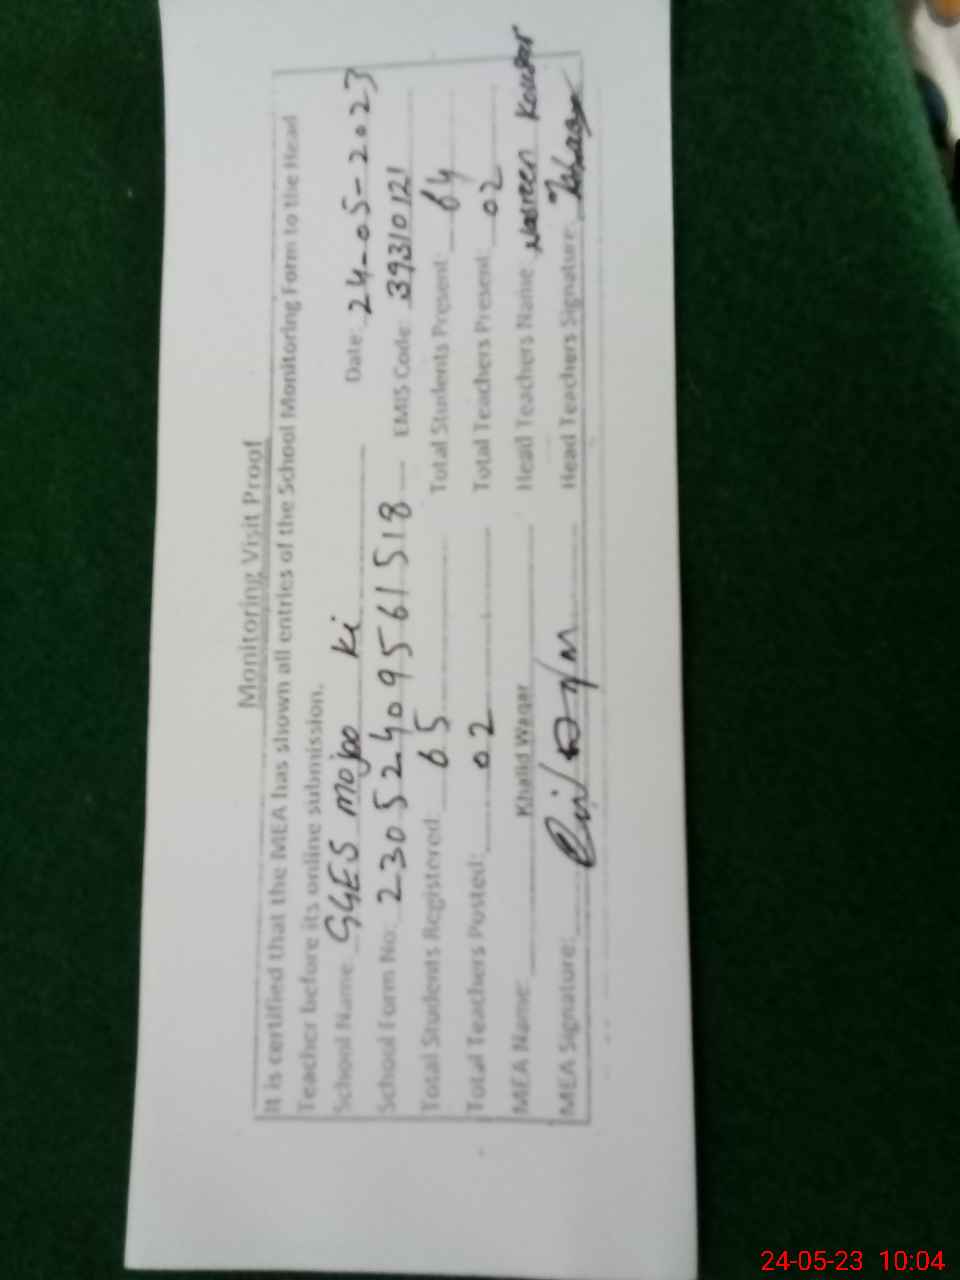 Monitoring Visit Proof
It is certified that the MEA has shown all entries of the School Monitoring Form to the Head
Teacher before its online submission.
School Name: GGES mojoo ki Date: 24-05-2023
School Form No: 23052409561518 EMIS Code: 39310121
Total Students Registered: 65 Total Students Present: 64
Total Teachers Posted: 02 Total Teachers Present: 02
MEA Name: Khalid Waqar Head Teachers Name Nasreen Kousar
MEA Signature: Head Teachers Signature:
24-05-23 10:04